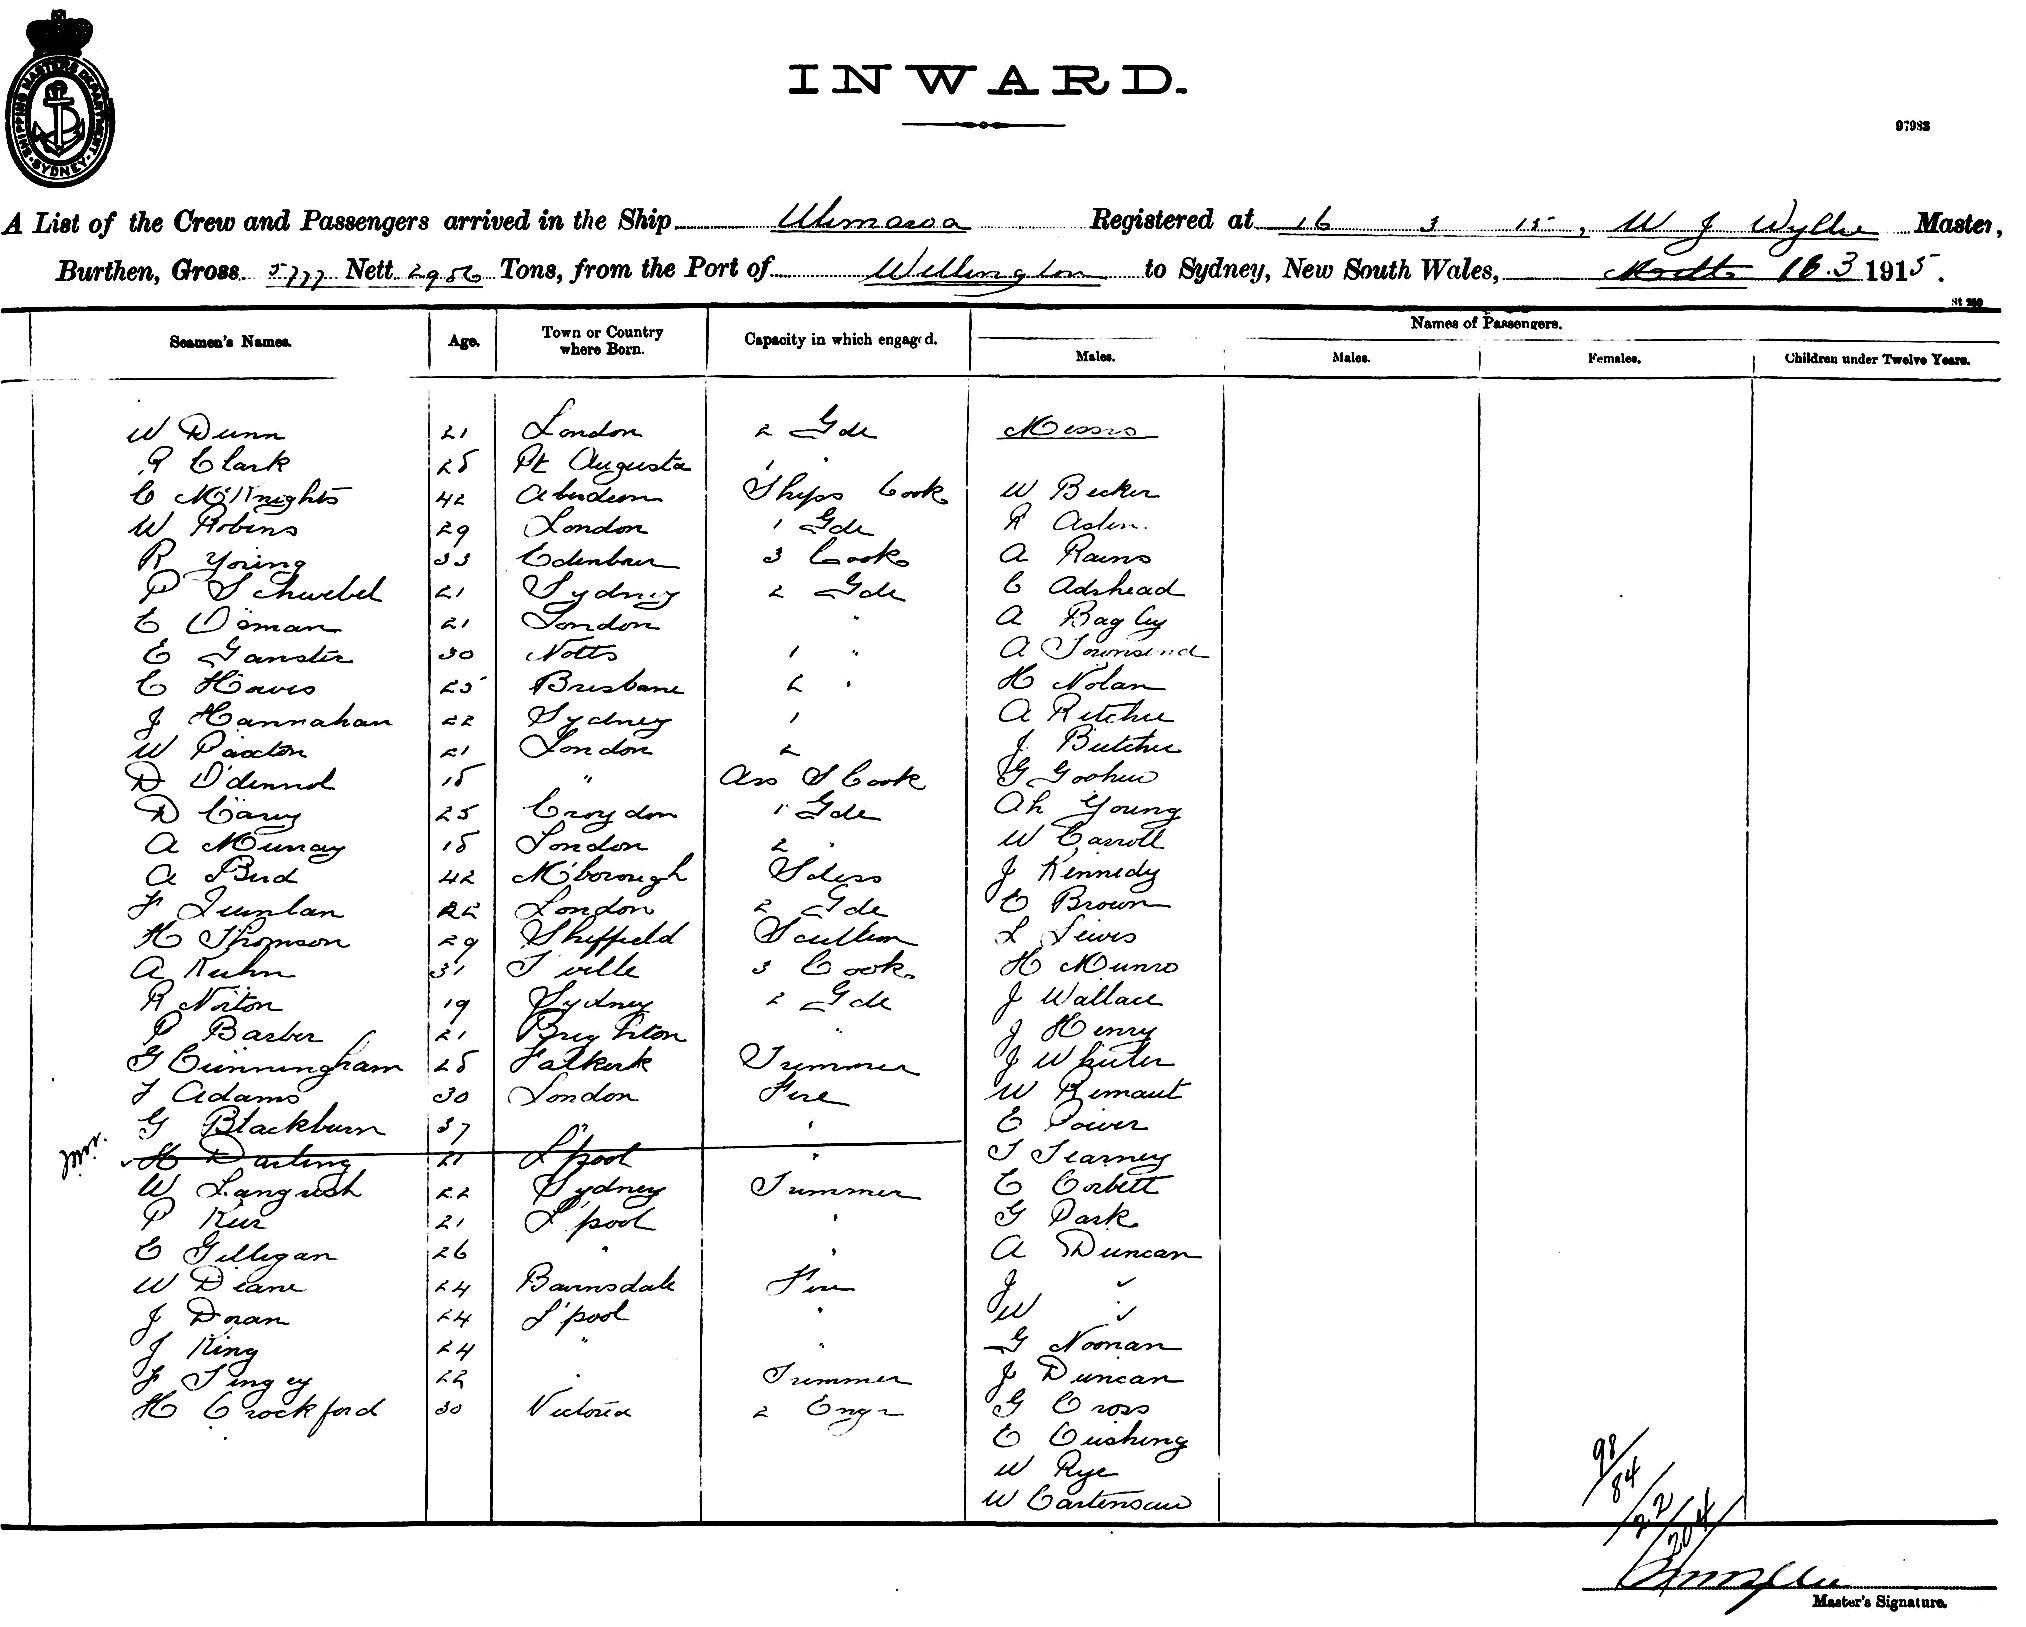 SHIPPING MASTERS DEPARTMENT SYDNEY
INWARD.
97983
A List of the Crew and Passengers arrived in the Ship Ulimaroa Registered at 16 3 15, W J Wyllie Master,
Burthen, Gross 5777 Nett 2956 Tons, from the Port of Wellington to Sydney, New South Wales, 16.3 1915.
St 299
Seamen's Names. Age. Town or Country where Born. Capacity in which engaged. Names of Passengers.
Males. Males. Females. Children under Twelve Years.
W Dunn 21 London 2 Gde Messrs
R Clark 25 Pt Augusta 1 "
C McKnights 42 Aberdeen Ships Cook W Becker
W Robins 29 London 1 Gde R
R Young 33 3 Cook A Rains
P Schwebel 21 Sydney 2 Gde C Adshead
E Osman 21 London " A Bagley
E Ganster 30 Notts 1 " A Townsend
C Hawes 25 Brisbane 2 " H Nolan
J Hannahan 22 Sydney 1 A Ritchie
W Paxton 21 London 2 J Butcher
D 18 " Ass S Cook G
D Carey 25 Croydon 1 Gde Ah Young
A Murray 18 London 2 " W Carroll
A Bird 42 M'borough Sdess J Kennedy
F Quinlan 22 London 2 Gde E Brown
H Thomson 29 Sheffield L Lewis
A Kuhn 31 T'ville 3 Cook H Munro
R Norton 19 Sydney 2 Gde J Wallace
P Barber 21 Brighton " J Henry
G Cunningham 25 Falkirk Trimmer J Wheeler
F Adams 30 London Fire W
G Blackburn 37 " " E Power
H Darling 21 L'pool " T Tearney
W Langrish 22 Sydney Trimmer E Corbett
P Kerr 21 L'pool " G Park
E Gilligan 26 " " A Duncan
W Deane 24 Barnsdale Fire J "
J Doran 24 L'pool " W "
J King 24 " " G Noonan
F Tingey 22 " Trimmer J Duncan
H Crockford 30 Victoria 2 Engr G Cross
E Cushing
W Rye
W
98/84
/22
/204
Master's Signature.